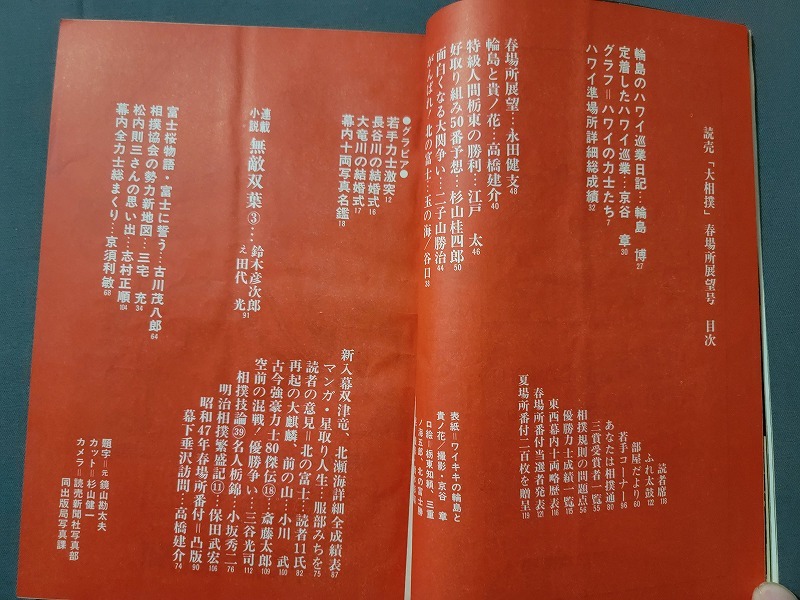 読売「大相撲」春場所展望号　目次
輪島のハワイ巡業日記…輪島　博 27
定着したハワイ巡業…京谷　章 30
グラフ＝ハワイの力士たち 7
ハワイ準場所詳細総成績 32
春場所展望…永田健支 48
輪島と貴ノ花…高橋建介 40
特級人間栃東の勝利…江戸　太 46
好取り組み50番予想…杉山桂四郎 50
面白くなる大関争い…二子山勝治 44
がんばれ！北の富士…玉の海／谷口 33
読者席 118
ふれ太鼓 122
部屋だより 60
若手コーナー 96
あなたは相撲通 80
三賞受賞者一覧 35
相撲規則の問題点 56
優勝力士成績一覧 115
東西幕内十両略歴表 116
春場所番付当選者発表 121
夏場所番付二百枚を贈呈 119
表紙＝ワイキキの輪島と
貴ノ花／撮影・京谷　章
口絵＝栃東知頼、三重
ノ海五郎、北の富士勝
●グラビア●
若手力士激突 12
長谷川の結婚式 16
大竜川の結婚式 17
幕内十両写真名鑑 18
連載小説　無敵双葉③…鈴木彦次郎
え　田代　光 91
富士桜物語・富士に誓う…古川茂八郎 64
相撲協会の勢力新地図…三宅　充 34
松内則三さんの思い出…志村正順 104
幕内全力士総まくり…京須利敏 68
新入幕双津竜、北瀬海詳細全成績表 87
マンガ・星取り人生…服部みちを 75
読者の意見＝北の富士…読者11氏 82
再起の大麒麟、前の山…小川　武 100
古今強豪力士80傑伝⑱…斎藤太郎 109
空前の混戦／優勝争い…三谷光司 112
相撲技論㊴名人栃錦…小坂秀二 76
明治相撲繁盛記⑪…保田武宏 106
昭和47年春場所番付＝凸版 90
幕下垂沢訪問…高橋建介 74
題字＝元　鏡山勘太夫
カット＝杉山健一
カメラ＝読売新聞社写真部
同出版局写真課